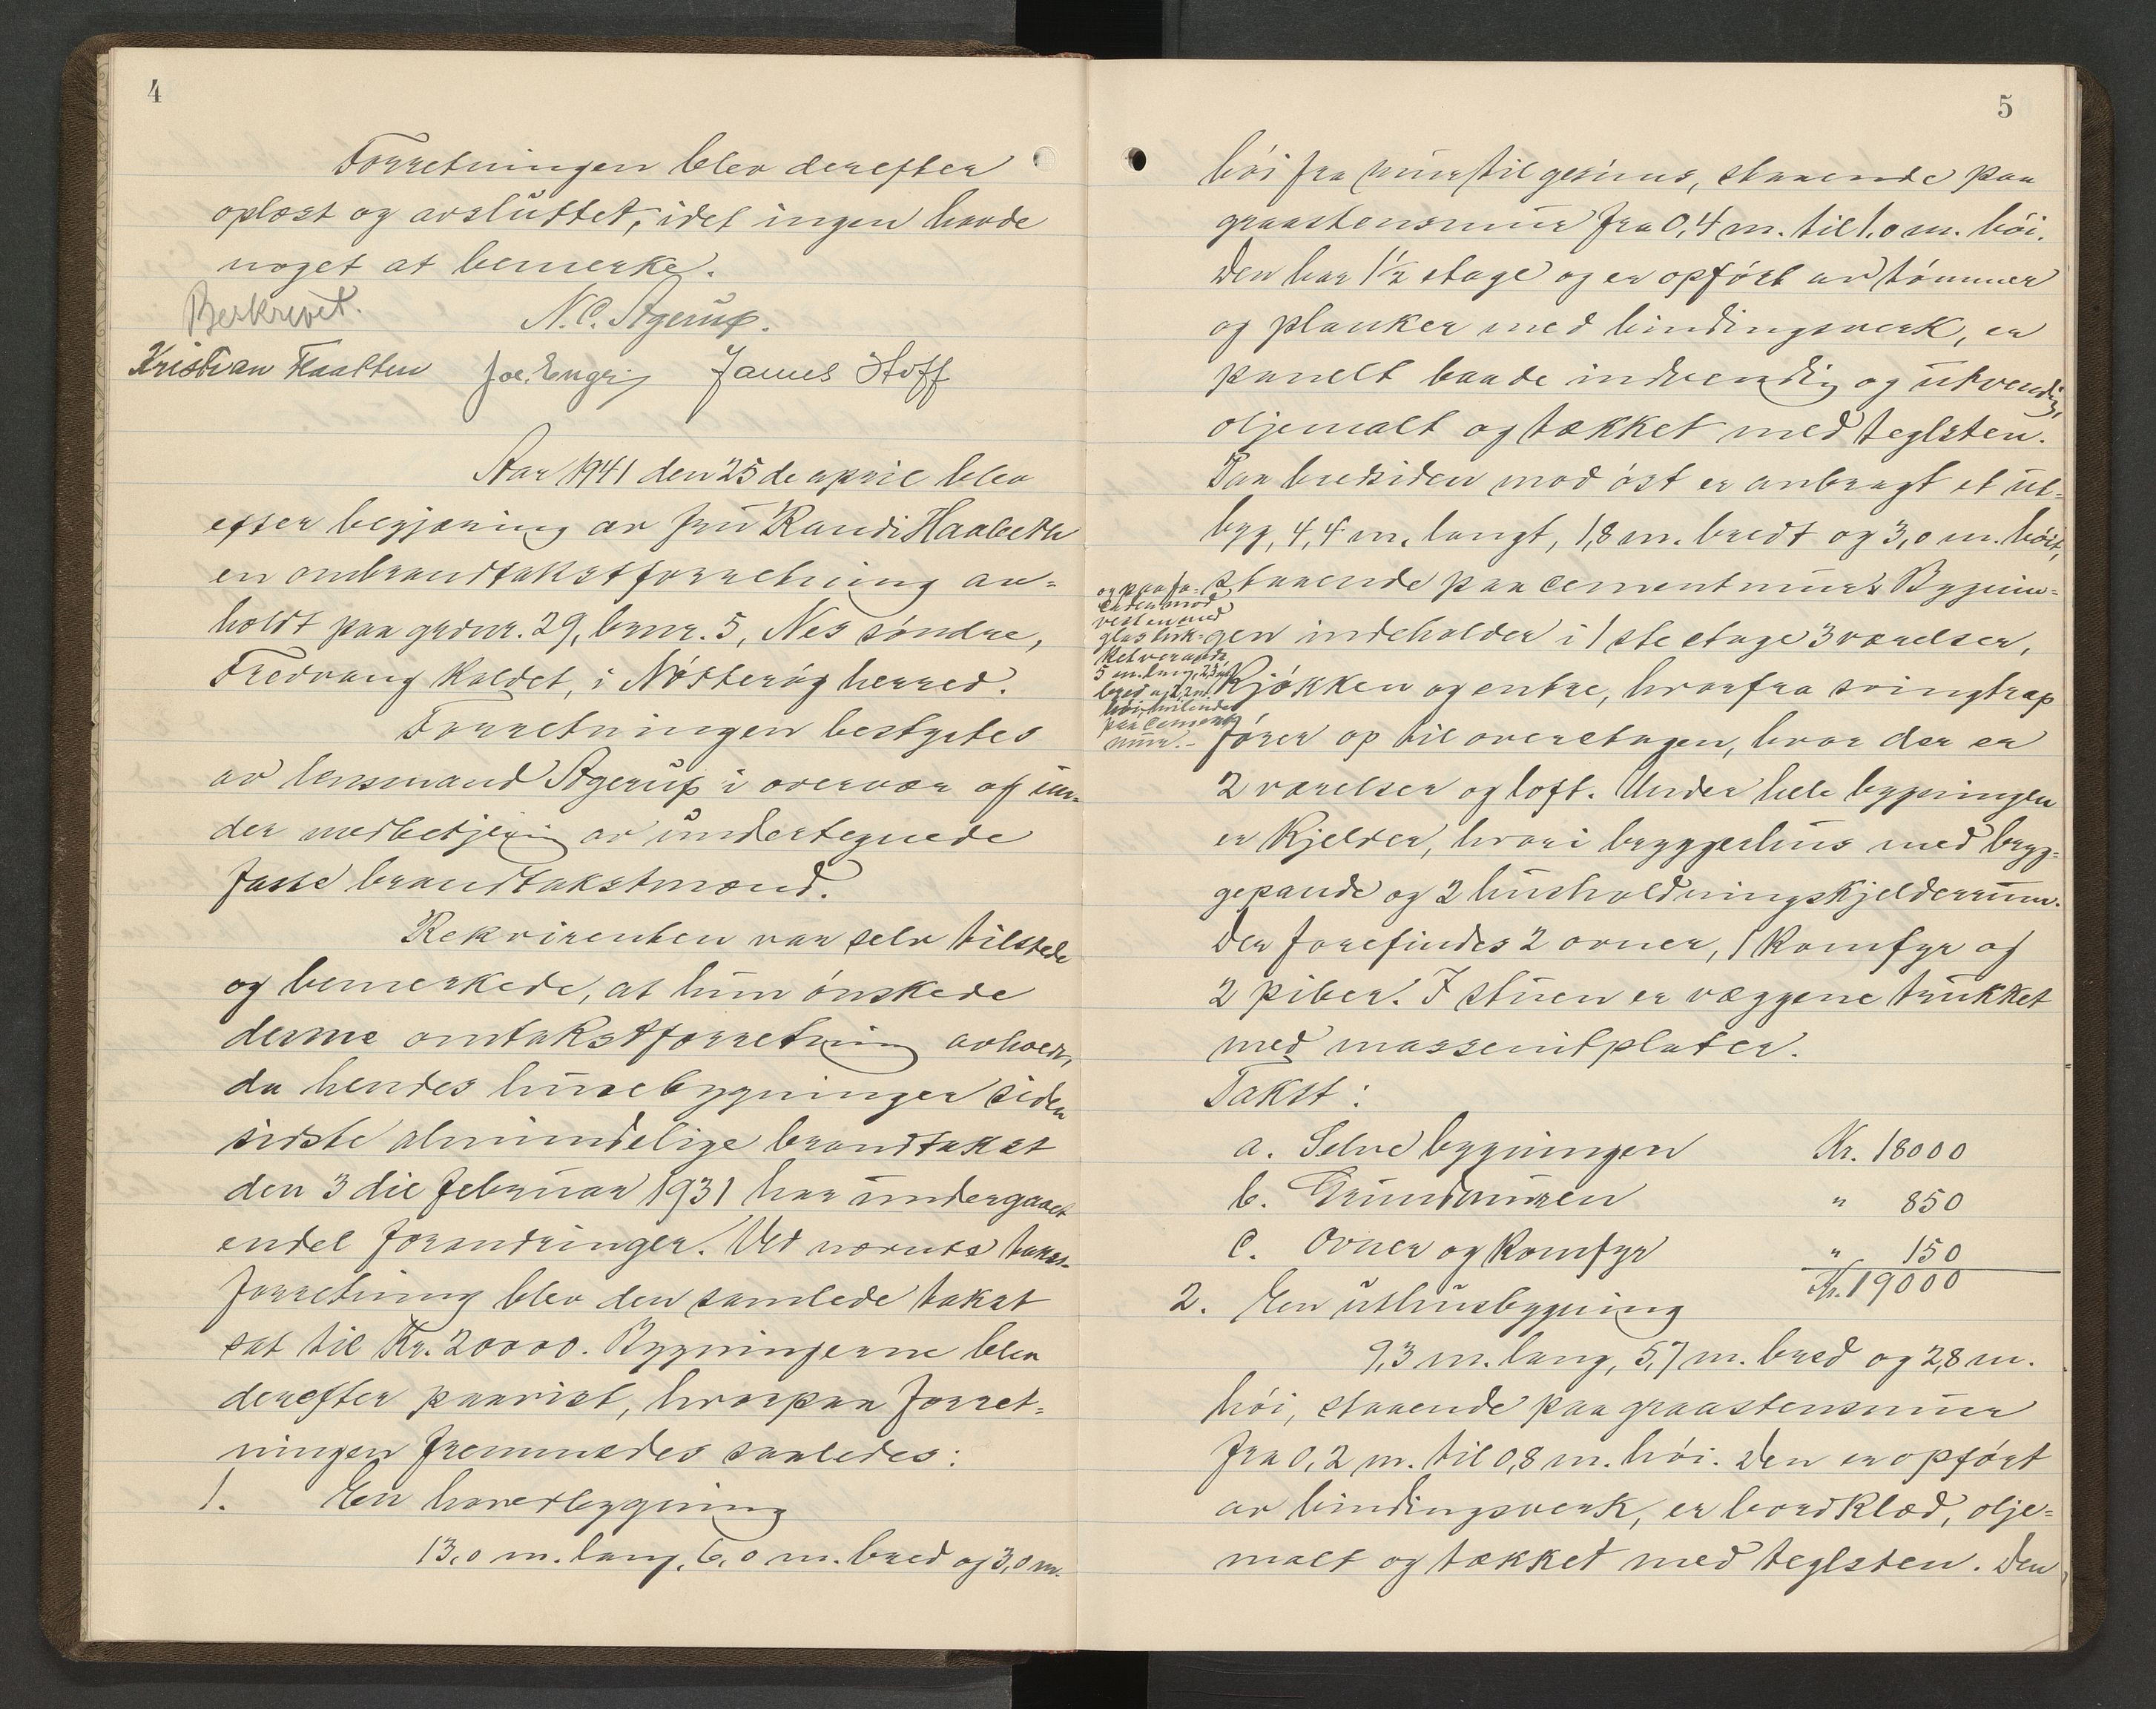 4
Forretningen blev derefter
oplæst og avsluttet, idet ingen havde
noget at bemerke.
Beskrevet. N. C. Agerup.
Kristian Haatten Joe. Engø James Hoff
Aar 1941 den 25de april blev
efter begjæring av fru Randi Haabeth
en ombrandtakstforretning av=
holdt paa gnr. 29, brnr. 5, Nes søndre,
Fredvang kaldet, i Nøtterøy herred.
Forretningen bestyrtes
av lensmand Agerup i overvær og un=
der medbetjening av undertegnede
faste brandtakstmænd.
Rekvirenten var selv tilstede
og bemerkede, at hun ønskede
denne omtakstforretning avholdt,
da hendes husebygninger siden
sidste almindelige brandtakst
den 3die februar 1931 har undergaaet
endel forandringer. Ved nævnte takst=
forretning blev den samlede takst
sat til Kr. 20000. Bygningerne blev
derefter paavist, hvorpaa forret=
ningen fremmedes saaledes:
1. En hovedbygning
13,0 m. lang, 6,0 m. bred og 3,0 m.
5
høi fra mur til gesims, staaende paa
graastensmur fra 0,4 m. til 1,0 m. høi.
Den har 1½ etage og er opført av tømmer
og planker med bindingsverk, er
panelt baade indvendig og utvendig,
oljemalt og tækket med teglsten.
Paa bredsiden mod øst er anbragt et ut=
byg, 4,4 m. langt, 1,8 m. bredt og 3,0 m. høit,
staaende paa cementmur. Bygnin=
og paa fa=
caden mod
vest en med
glas
ket veranda,
5 m. lang, 2,3 m.
bred og 2,2 m.
høi, hvilende
paa cement
mur.-
gen indeholder i 1ste etage 3 værelser,
Kjøkken og entre, hvorfra svingtrap
fører op til overetagen, hvor der er
2 værelser og loft. Under hele bygningen
er Kjelder, hvori bryggerhus med bryg=
gepande og 2 husholdningskjelderrum.
Der forefindes 2 ovner, 1 Komfyr og
2 piber. I stuen er væggene trukket
med massenitplater.
Takst:
a. Selve bygningen Kr. 18000
b. Grundmuren " 850
c. Ovner og Komfyr " 150
Kr. 19000
2. En uthusbygning
9,3 m. lang, 5,7 m. bred og 2,8 m.
høi, staaende paa graastensmur
fra 0,2 m. til 0,8 m. høi. Den er opført
av bindingsverk, er bordklæd, olje=
malt og tækket med teglsten. Den